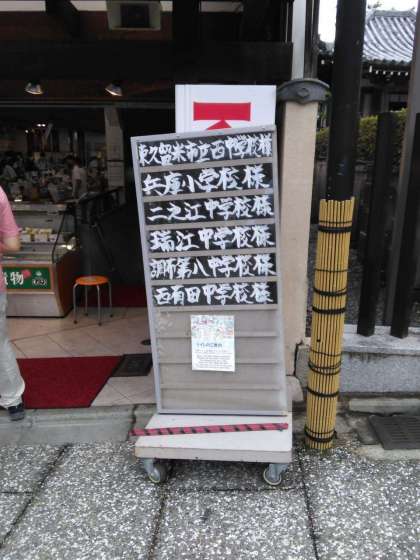 東久留米市立西中学校様
兵庫小学校様
二之江中学校様
瑞江中学校様
調布第八中学校様
西有田中学校様
トイレのご案内
物